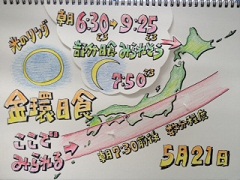 光のリング
朝 6:30→9:25
ごろ ごろ
部分日食 みられそう
7:50ごろ
金環日食
ここで
みられる
朝7:30前後
5月21日